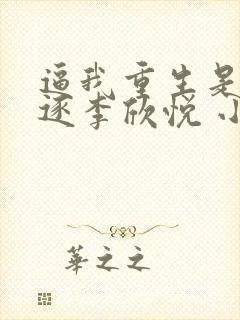 逼我重生是
逐李欣悦 小
華之之